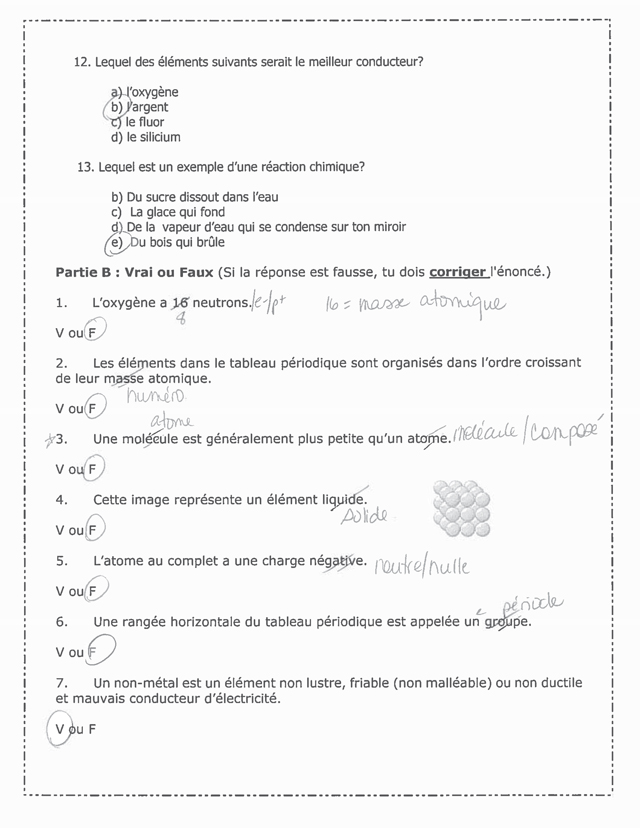 12. Lequel des éléments suivants serait le meilleur conducteur?
a) l'oxygène
b) l'argent
c) le fluor
d) le silicium
13. Lequel est un exemple d'une réaction chimique?
b) Du sucre dissout dans l'eau
c) La glace qui fond
d) De la vapeur d'eau qui se condense sur ton miroir
e) Du bois qui brûle
Partie B : Vrai ou Faux (Si la réponse est fausse, tu dois corriger l'énoncé.)
1. L'oxygène a 16 neutrons. /e-/p+ 16 = masse atomique
8
V ou F
2. Les éléments dans le tableau périodique sont organisés dans l'ordre croissant
de leur masse atomique.
numéro
V ou F
atome
3. Une molécule est généralement plus petite qu'un atome. molécule/composé
V ou F
4. Cette image représente un élément liquide.
solide
V ou F
5. L'atome au complet a une charge négative. neutre/nulle
V ou F
e période
6. Une rangée horizontale du tableau périodique est appelée un groupe.
V ou F
7. Un non-métal est un élément non lustre, friable (non malléable) ou non ductile
et mauvais conducteur d'électricité.
V ou F